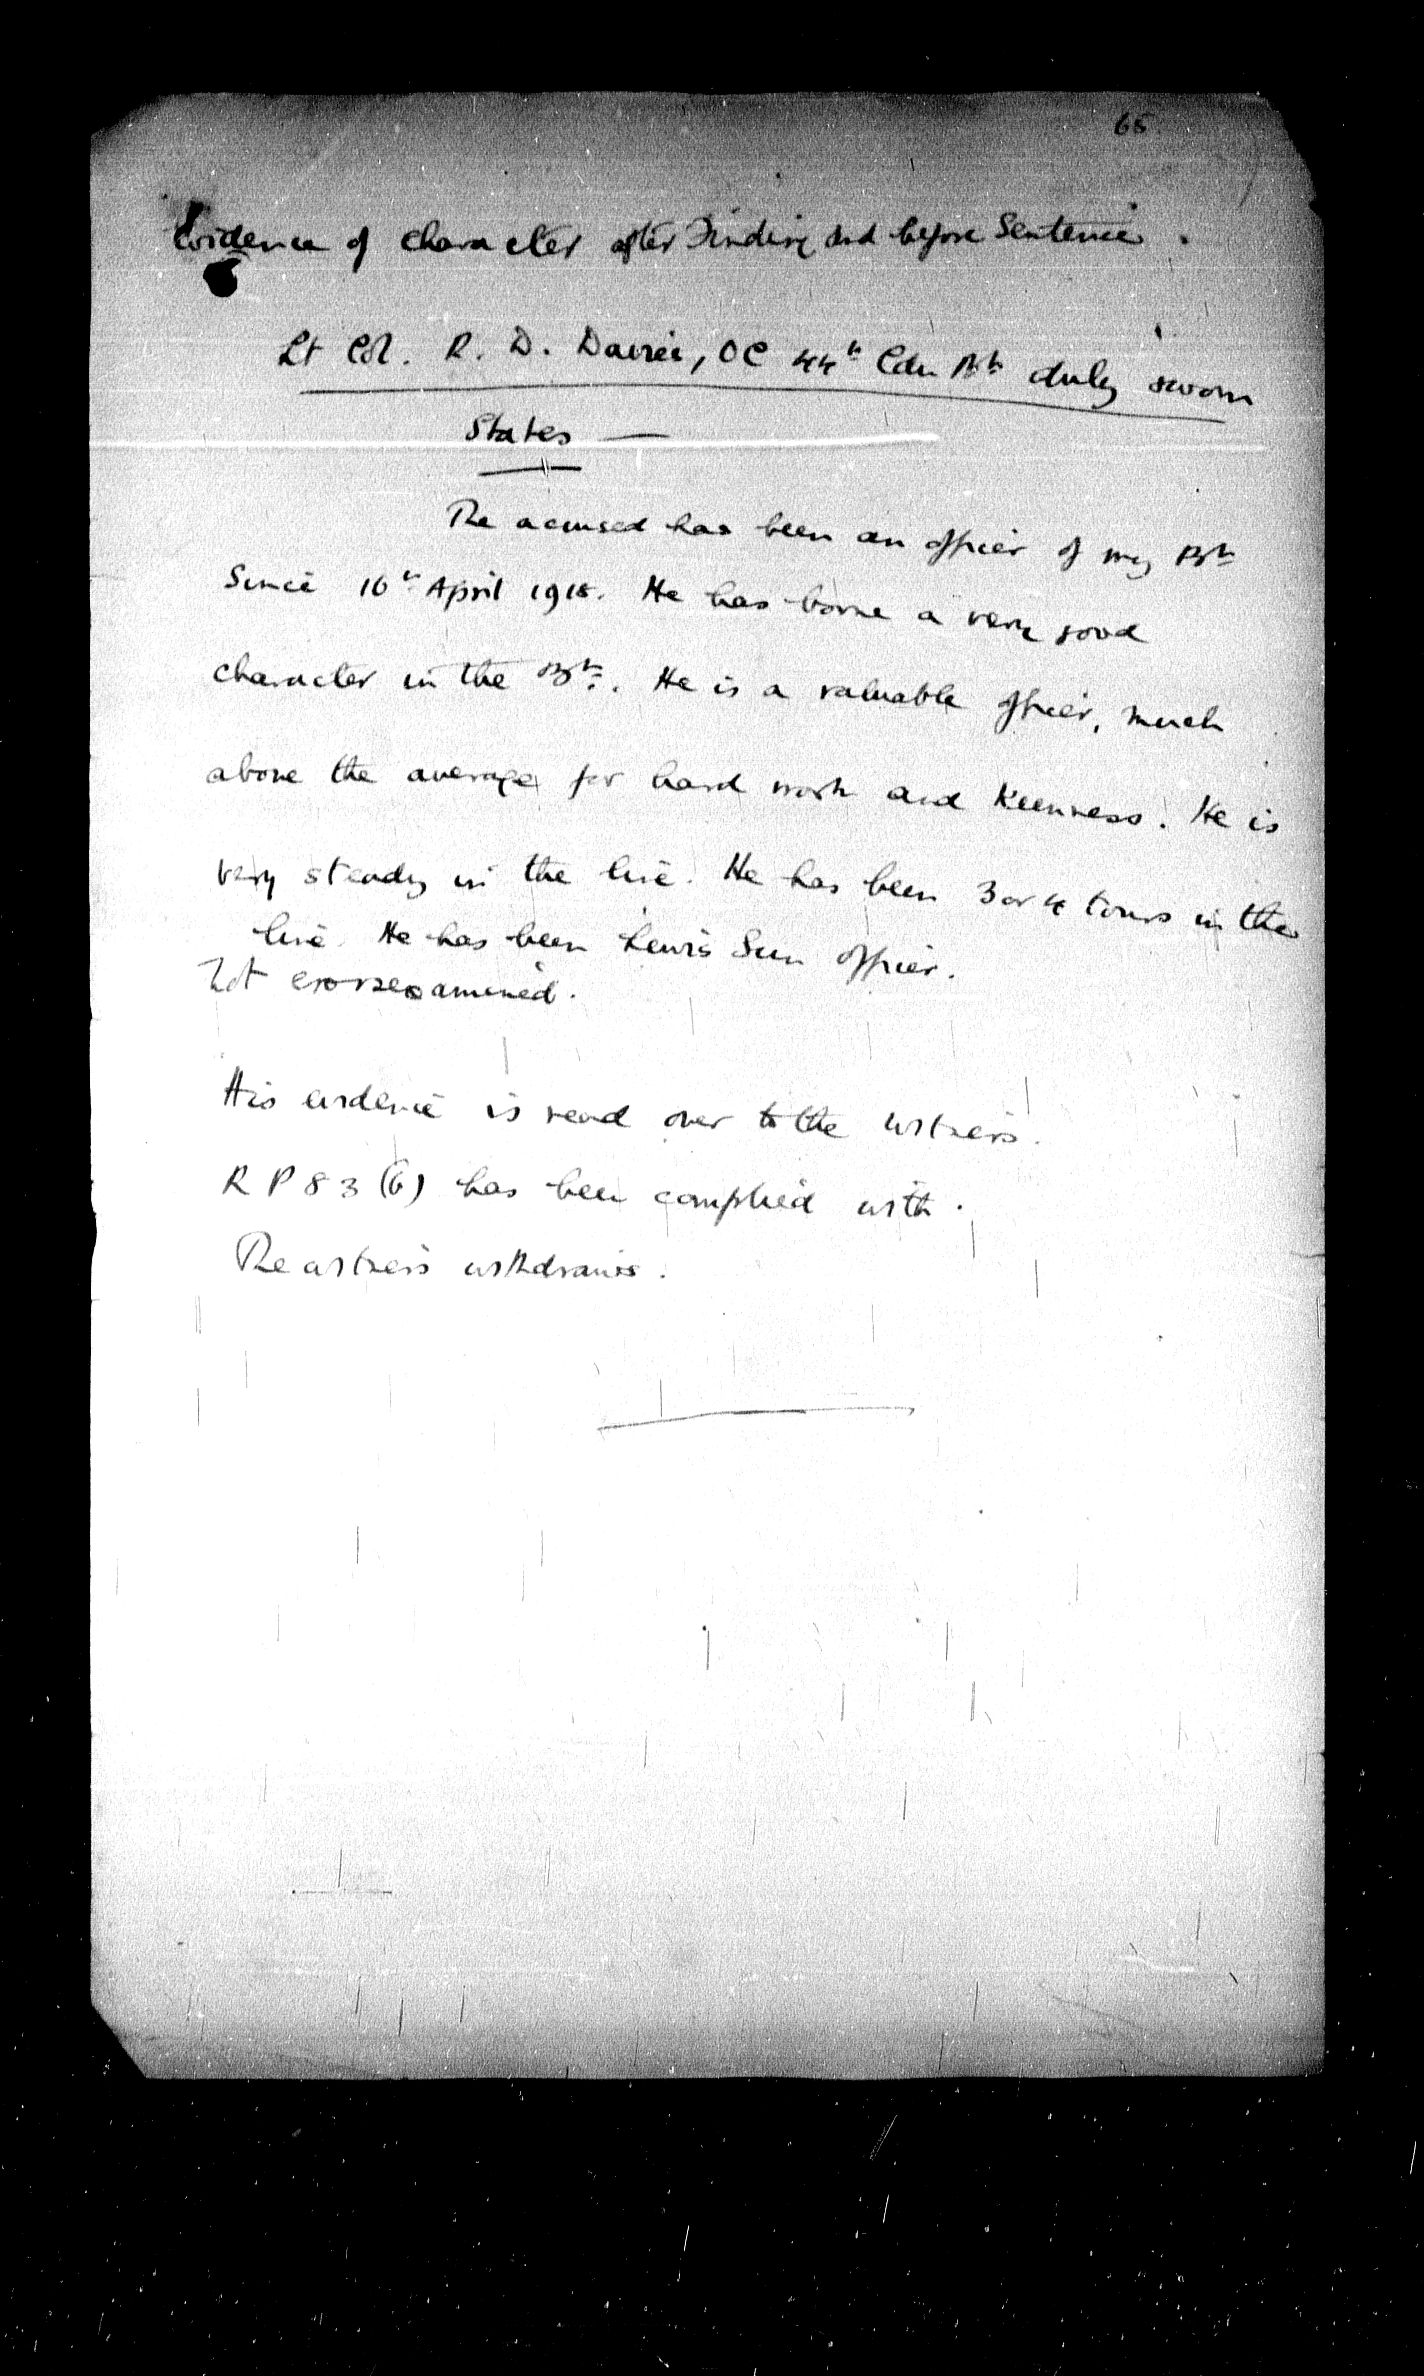 65
Evidence of Character after Finding and before Sentence.
Lt Col. R. D. Davies, OC 44th Cdn Bn duly sworn
States —
The accused has been an officer of my Bn
since 16th April 1918. He has borne a very good
character in the Bn. He is a valuable officer, much
above the average for hard work and keenness. He is
very steady in the line. He has been 3 or 4 tours in the
line. He has been Lewis Gun Officer.
Not crossexamined.
His evidence is read over to the witness.
R P 83 (B) has been complied with.
The witness withdraws.